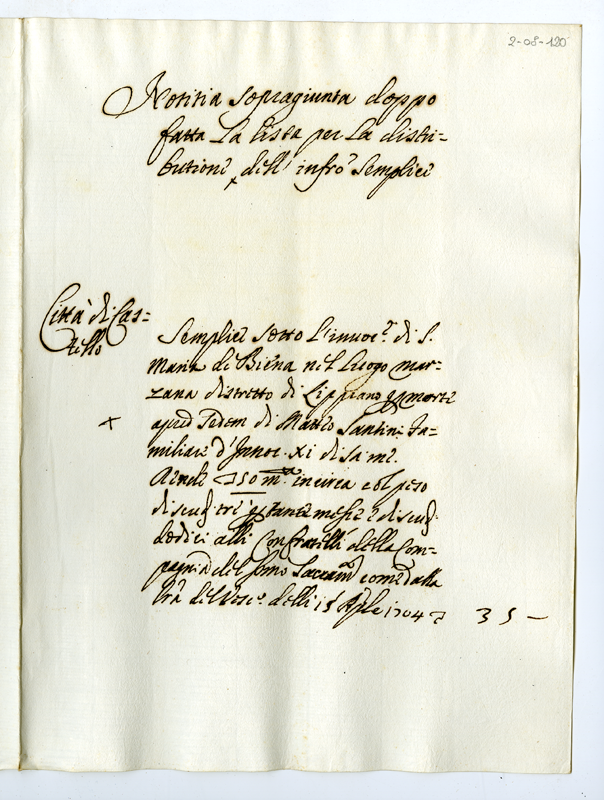 2-08-120
Notitia sopragiunta doppo
fatta La lista per La distri-
butione dell' infro Semplici
Città di Cas-
tello
Semplice sotto L'invoc.e di S.
Maria di Biena nel Luogo mar-
zana distretto di Lippiano
apud Sedem di Matteo Santini fa-
miliare d'Innoc. XI di sa: me:
Ascende 150 m.a incirca col peso
di scudi tre per tante messe e di scudi
dodici alli Confratelli della Com-
pagnia del Smo Sacram.to come dalla
lra del Vesc.o delli 15 Aple 1704
35 -